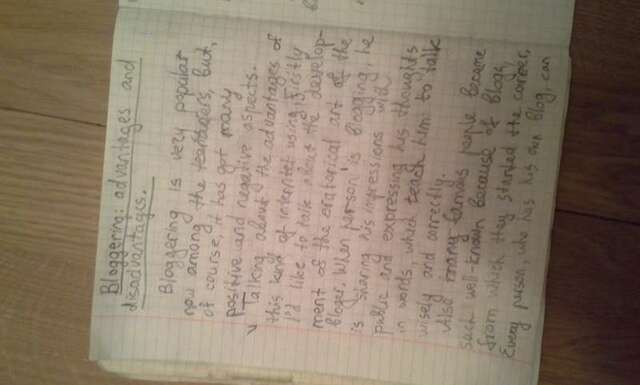 Bloggering: advantages and
disadvantages.
Bloggering is very popular
now among the teenagers, but,
of course, it has got many
positive and negative aspects.
Talking about the advantages of
this kind of internet using, firstly
I'd like to talk about the develop-
ment of the oratorical art of the
bloger. When person is blogging, he
is sharing his impressions with
public and expressing his thoughts
in words, which teach him to talk
wisely and correctly.
Also many famous people became
such well-known because of blogs,
from which they started the career.
Every person, who has his own blog, can